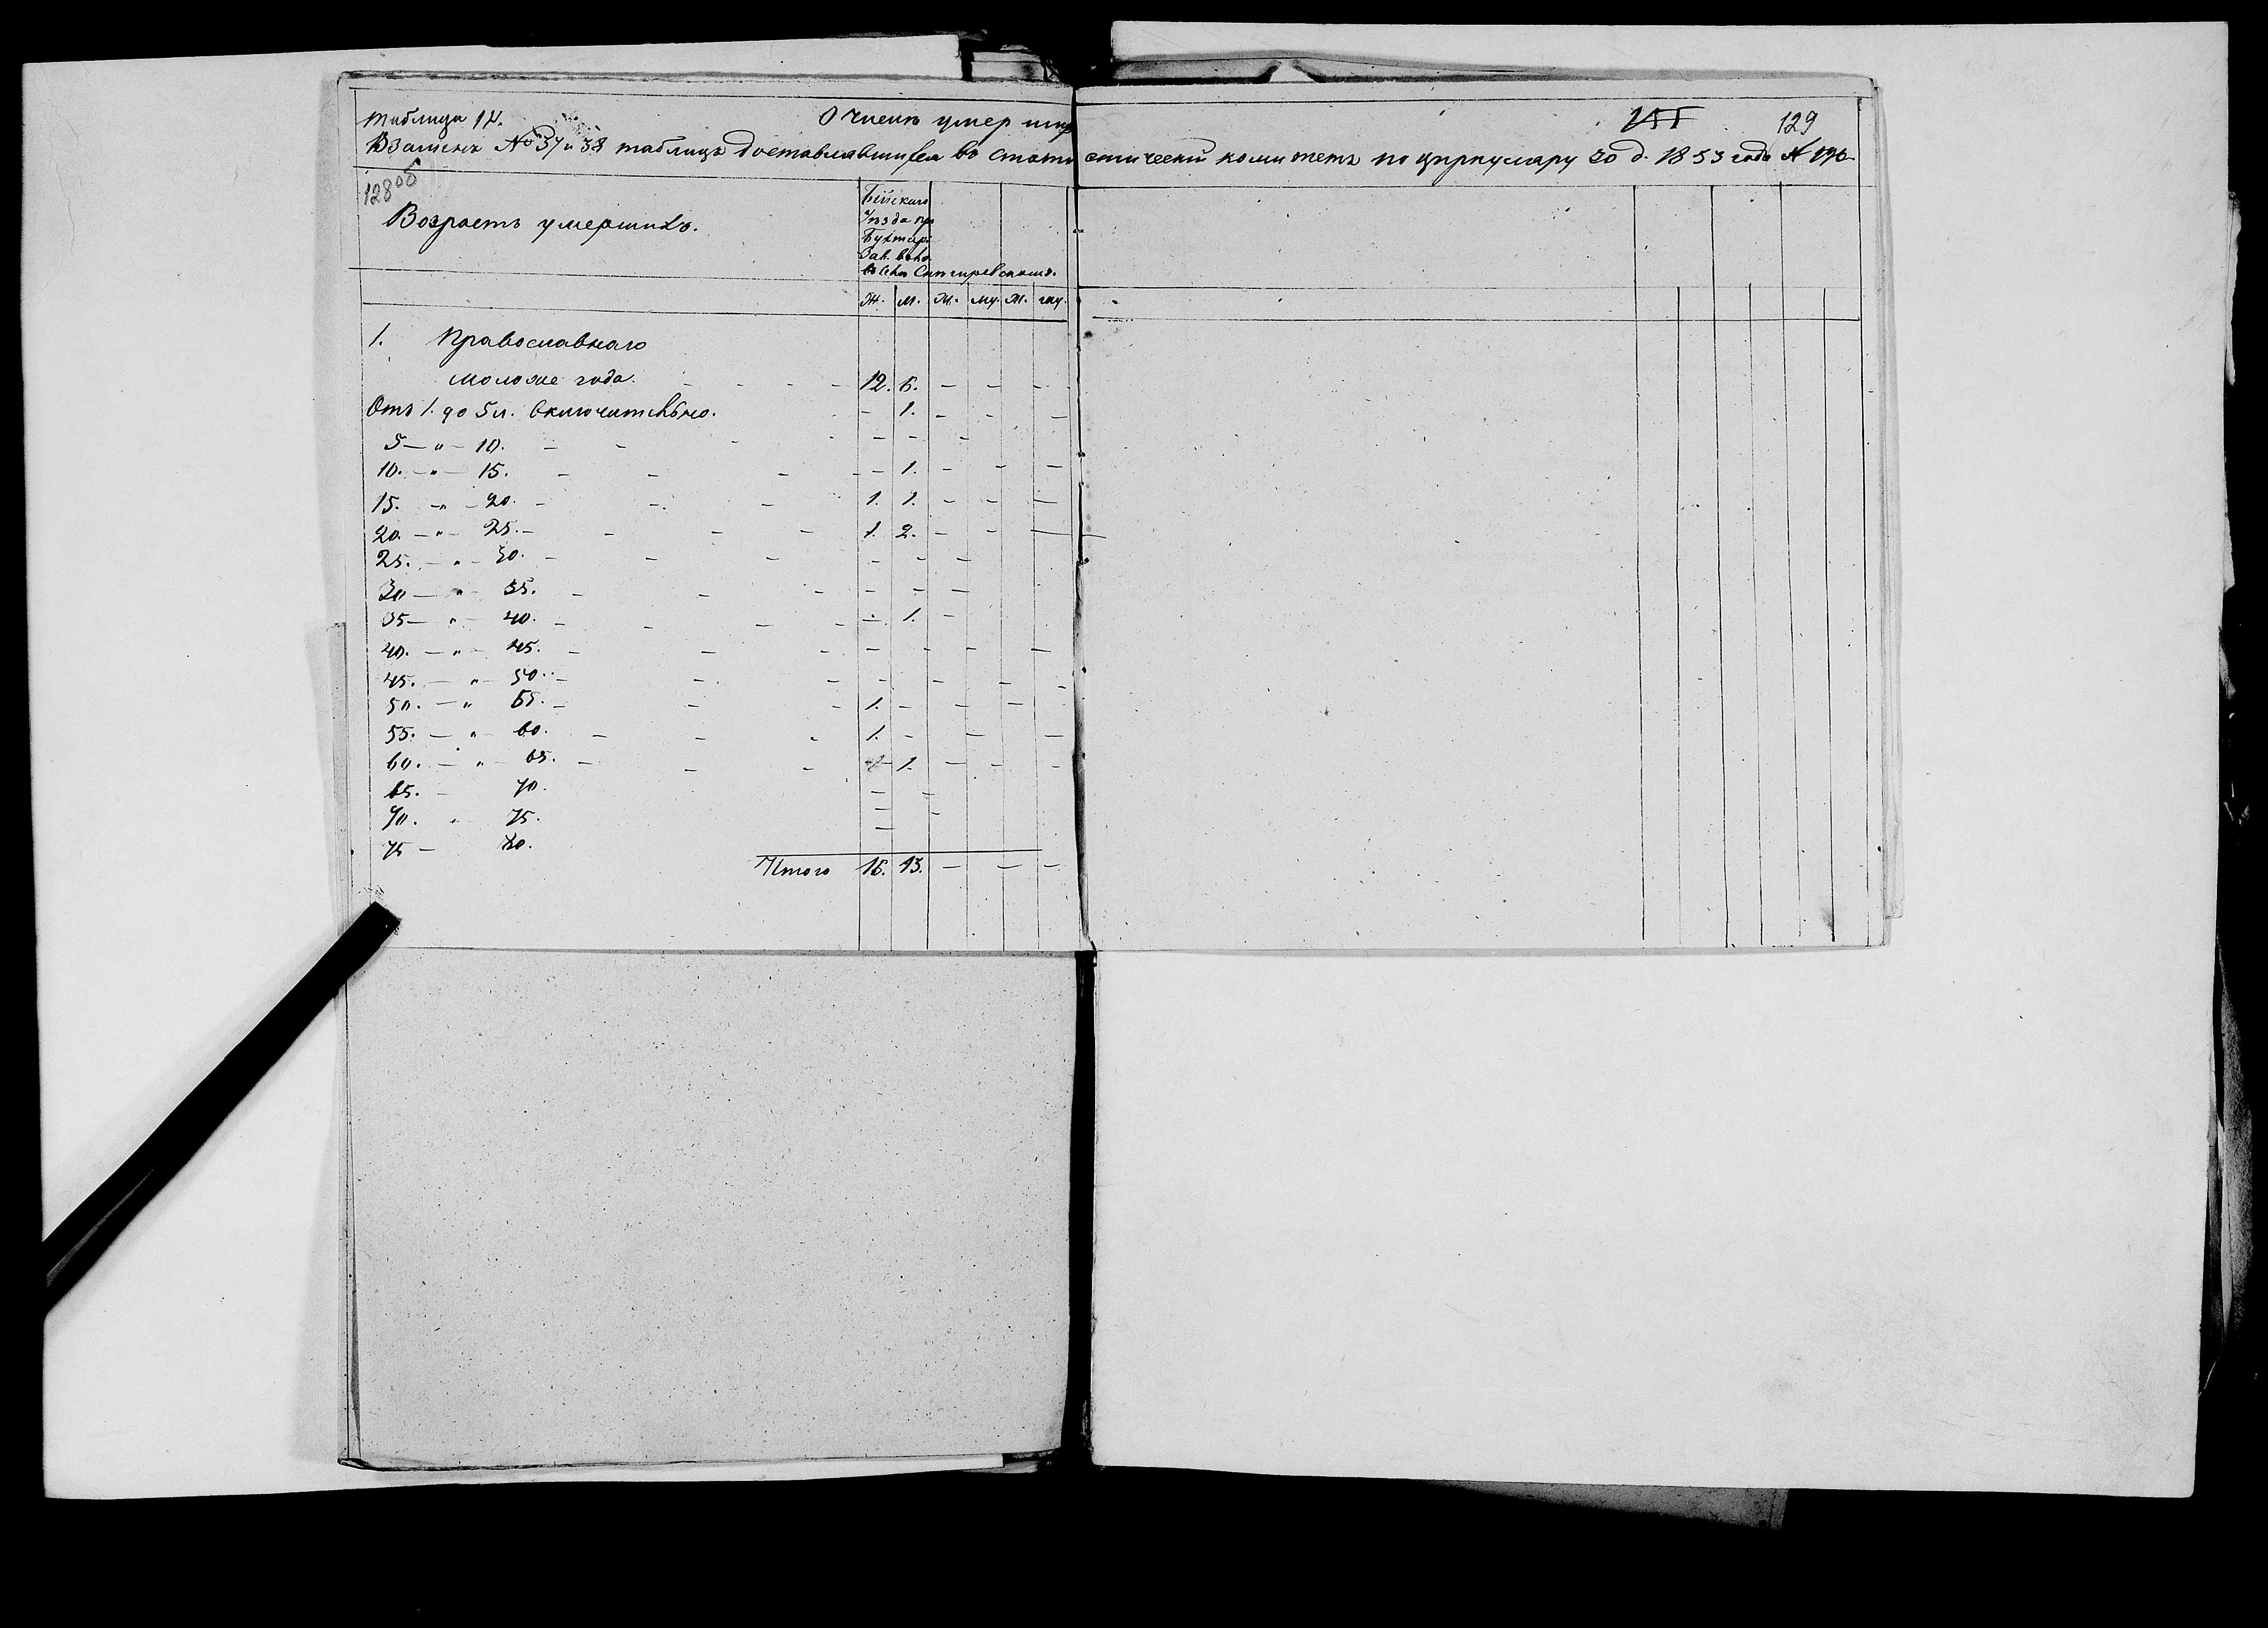 Таблица 14. О числѣ умерших 129
Взаменъ № 37 и 38 таблицъ доставлявшихся въ статистическій комитетъ по циркуляру 30 д. 1853 года №
128 об
Возрастъ умершихъ.
Бійскаго
Уѣзда
Бухтар.
въ селѣ Снигиревскомъ.
Ж. М. М. М.
1. Православнаго
моложе года. - - - - 12. 6. - - -
Отъ 1. до 5 л. включительно. - - 1. - - -
5 — " — 10. - - - - - - -
10. — " — 15. - - - - - 1. - - -
15. — " — 20. - - - 1. 1. - - -
20. — " — 25. - - - - 1. 2. - - -
25. — " — 30. - - - - - -
30 — " — 35. - - - - - -
35 — " — 40. - - - - - 1. -
40. — " — 45. - - - - - - -
45. — " — 50. - - - - - - -
50. — " 55. - - - 1. - - -
55. — " — 60. - - - 1. - - -
60. — " — 65. - - - - 1. - - -
65. — 70. - -
70. " 75. - -
75 — 80. -
Итого 16. 13. - - -